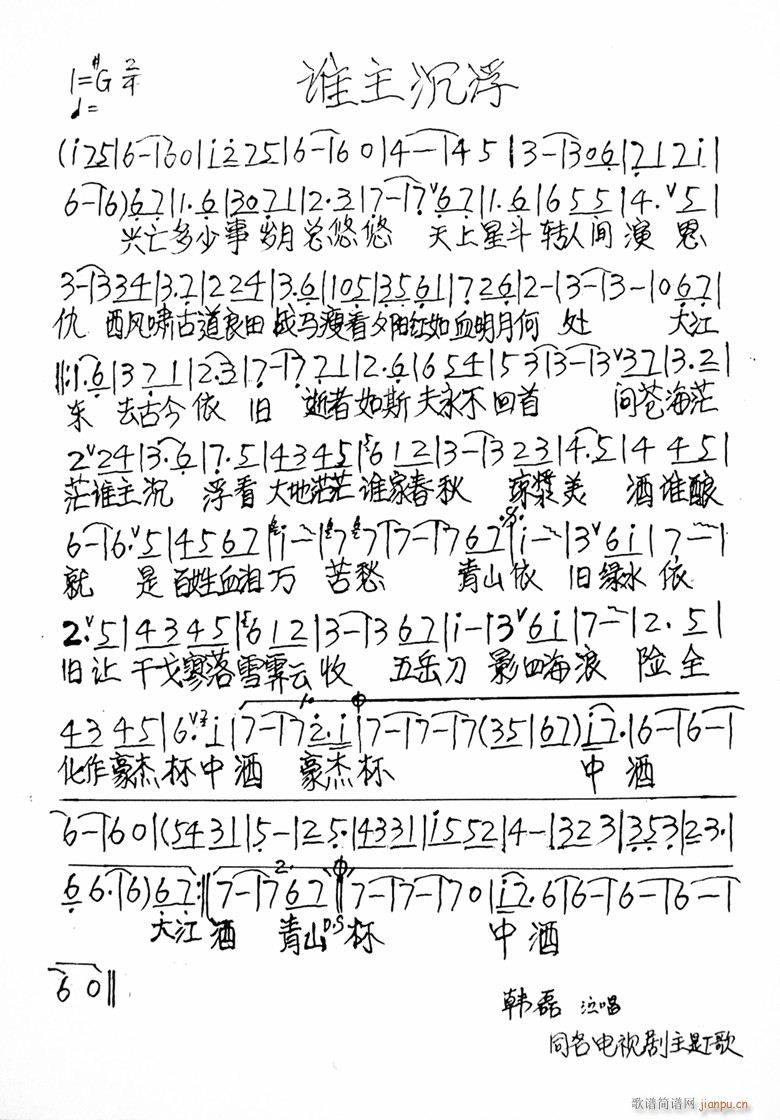 1=#G 2/4
谁主沉浮
(i 2 7 5|6-|6 0|i 2 7 5|6-|6 0|4-|4 5|3-|3 0 6|7 1 7 i|
6-|6) 6 7|1. 6|3 0 7 1|2. 3|7-|7 V 6 7|1. 6|6 5 5|4. V 5|
兴亡多少事 岁月总悠悠 天上星斗转人间演恩
3-|3 3 4|3. 7|2 2 4|3. 6|1 0 5|3 5 6 1|7 2 6|2-|3-|3-|0 6 7|
仇 西风啸古道良田战马瘦看夕阳红如血明月何处 大江
‖:1. 6|3 7 1|2. 3|7-|7 7 2 1|2. 6|6 5 4|1 5 3|3-|3 V 3 7|3. 2|
东 去古今依旧 逝者如斯夫永不回首 问苍海茫
2 V 2 4|3. 6|7. 5|4 3 4 5|6 1 2|3-|3 2 3|4. 5|4 4 5|
茫谁主沉 浮看大地茫茫谁家春秋 琼浆美 酒谁酿
6-|6. V 5|4 5 6 7|i-|7 7|7-|7 6 7|i-|3 V 6 i|7-|
就 是百姓血泪万 苦愁 青山依旧绿水依
2. V 5|4 3 4 5|6 1 2|3-|3 6 7|i-|3 V 6 i|7-|2. 5|
旧让干戈寥落雪霁云收 五岳刀影四海浪 险全
4 3 4 5|6. V i|7-|7 2. i|7-|7-|7 (3 5|6 7) i 7.|6-|6-|
化作豪杰杯中酒 豪杰杯 中酒
6-|6 0|(5 4 3 1|5-|2 5.|4 3 3 1|i 5 5 2|4-|3 2 3|3 5 3|2 3.|
6 6.|6) 6 7:‖7-|7 6 7‖7-|7-|7 0|i 7. 6|6-|6-|6-|
大江酒 青山 D.S 杯 中酒
6 0‖
韩磊 演唱
同名电视剧主题歌
歌谱简谱网
jianpu.cn